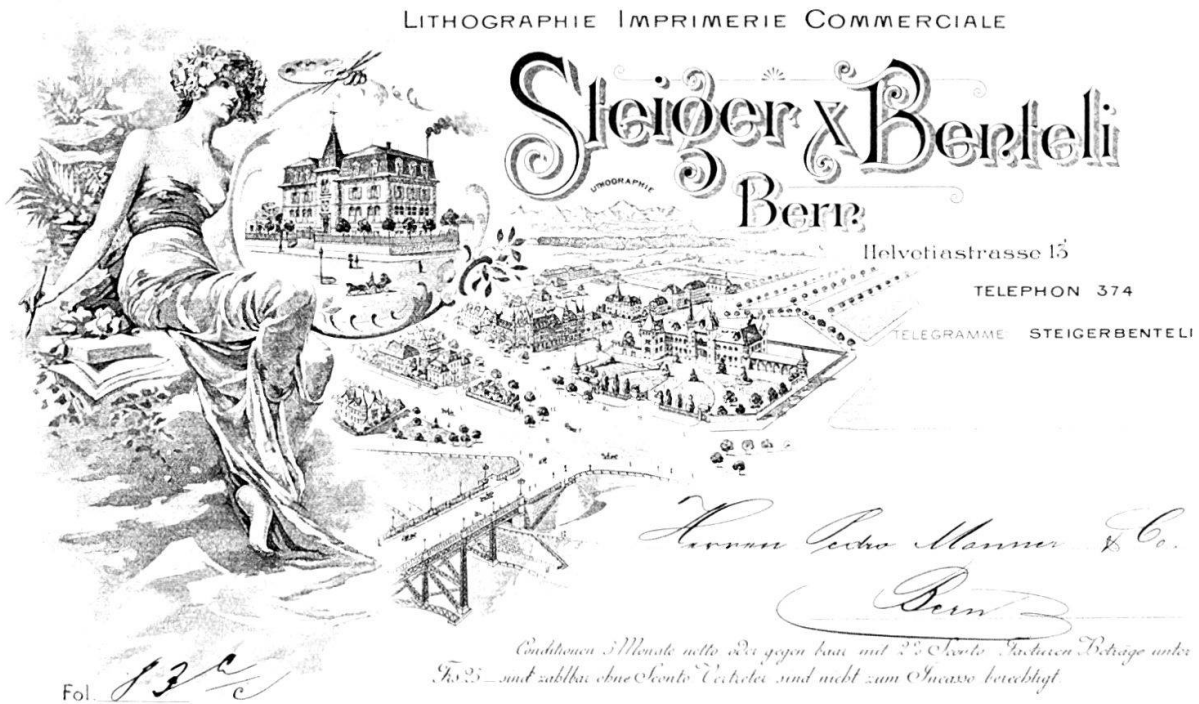 LITHOGRAPHIE IMPRIMERIE COMMERCIALE
Steiger & Benteli
LITHOGRAPHIE
Bern
Helvetiastrasse 13
TELEPHON 374
TELEGRAMME STEIGERBENTELI
Herren Pedro Manner & Co.
Bern
Conditionen 3 Monate netto oder gegen baar mit 2% Sconto. Facturen-Beträge unter
Frs 25 _ sind zahlbar ohne Sconto Vertreter sind nicht zum Incasso berechtigt.
Fol. 83 c/c